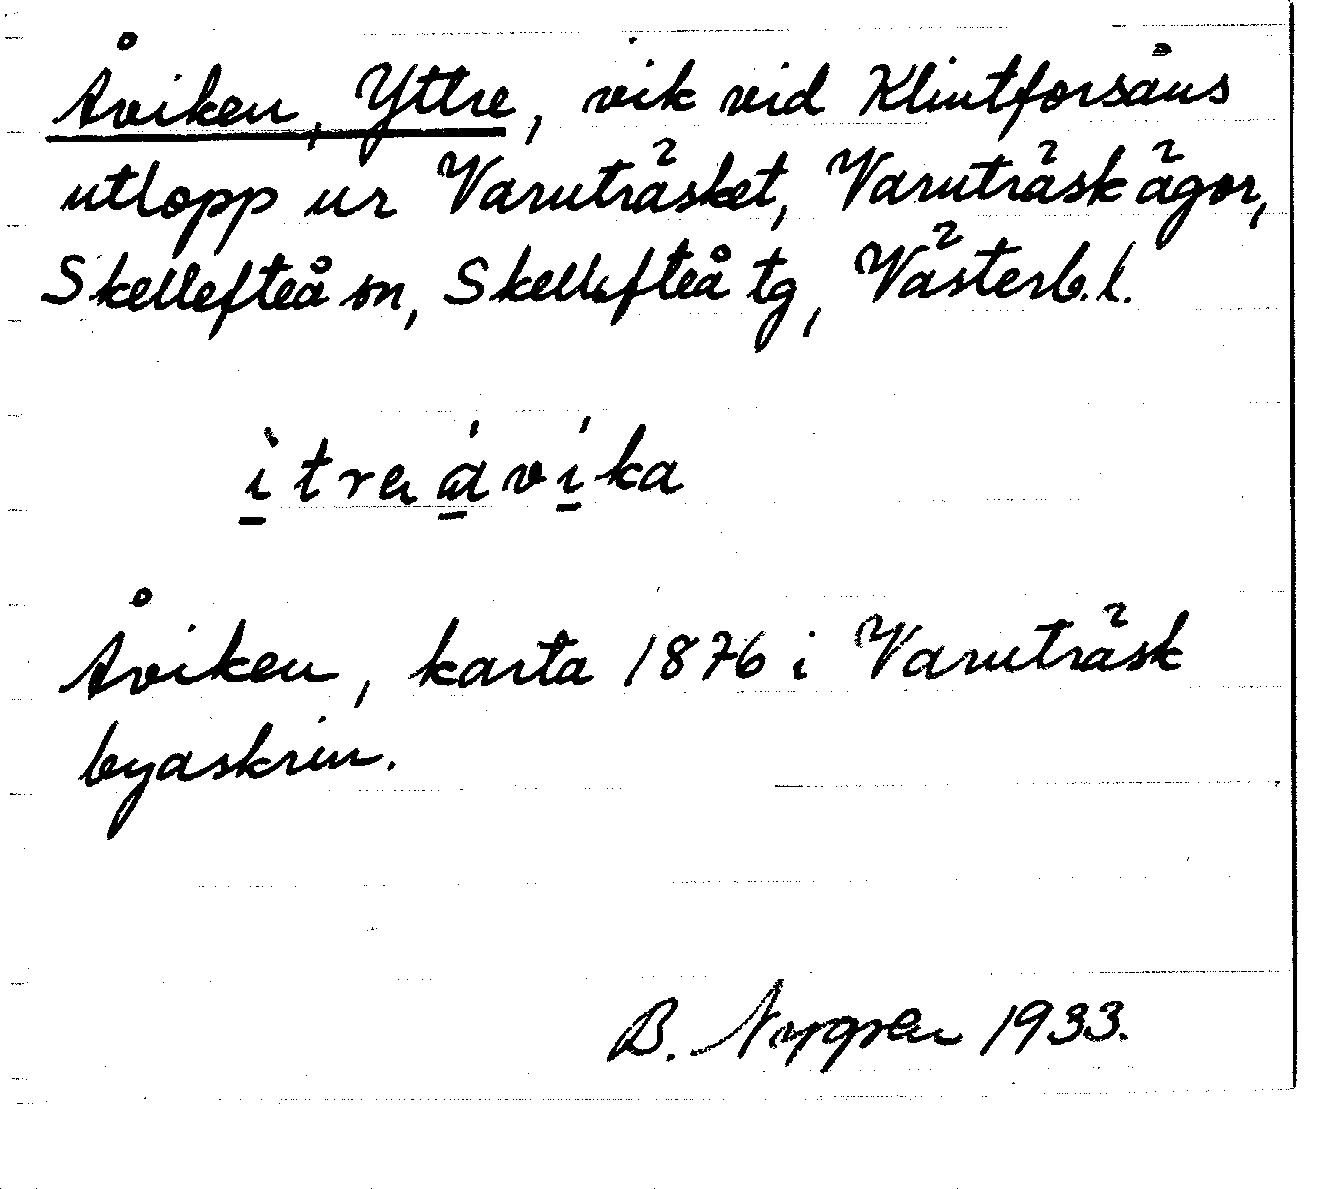 Åviken, Yttre, vik vid Klintforsåns
utlopp ur Varuträsket, Varuträsk ägor,
Skellefteå sn, Skellefteå tg, Västerb. l.
ı̀tra ǻvı́ka
Åviken, karta 1876 i Varuträsk
byaskrin.
B. Nygren 1933.